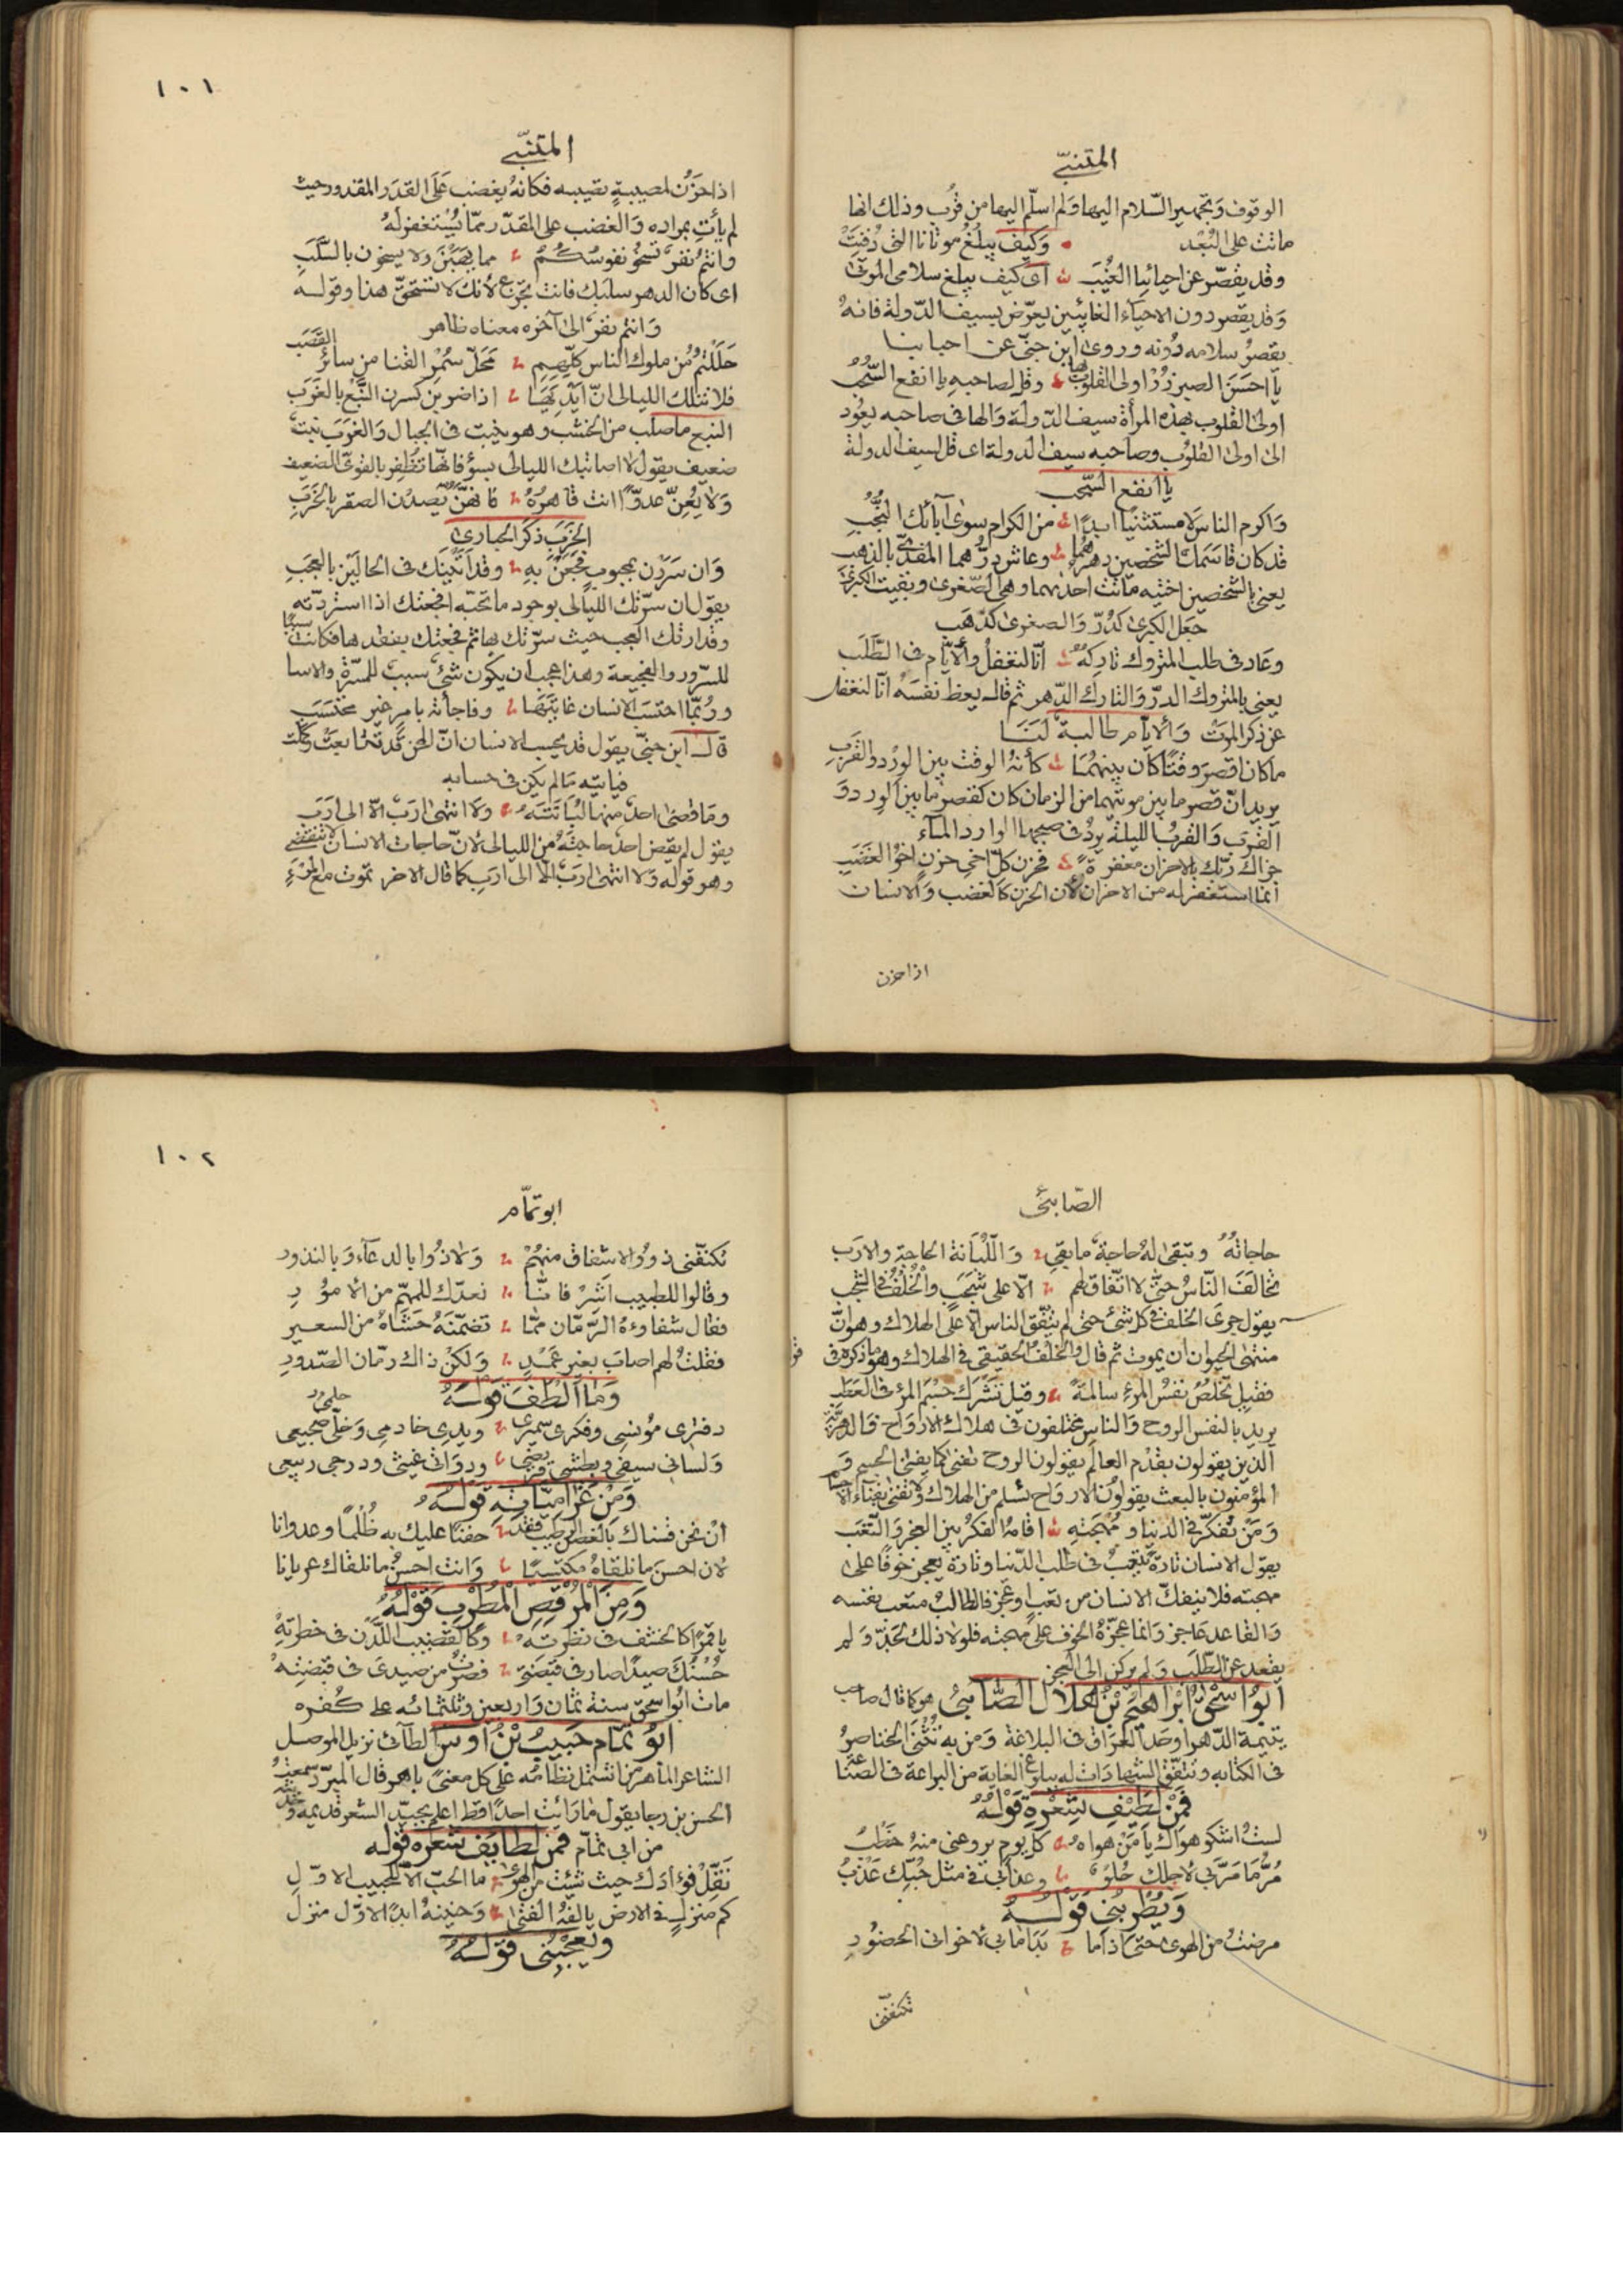 المتنبّي
الوقوف وتجهير السّلام اليها ولم اسلّم اليها من قرب وذلك انها
ماتت على البُعْد وَكيفَ يبلُغُ موتانا التي دُفِنَتْ
وقد يقصّر عن احيائنا الغُيَبَ اى كيف يبلغ سلامى الموتى
وقد يقصر دون الاحياء الغائبين يعرّض بسيف الدّولة فانهُ
يقصر سلامه دونه وروى ابن جنّى عن احبابنا
يا احسَنَ الصبر زُرْ اولى القلوب بها وقل لصاحبه يا انفع السُّحُبِ
اولى القلوب بهذه المرأة سيف الدّولة والها فى صاحبه يعُود
الى اولى القلوب وصاحبه سيف الدولة اى قل لسيف الدولة
يا انفع السّحب
وَاكرم الناس لا مستثنيًا ابدًا من الكرام سوى آبائك النُّجُبِ
قد كان قاسمَك الشخصين دهرهُما وعاش درّهما المفدىّ بالذهب
يعنى بالشخصين اختيه ماتت احداهما وهى الصّغرى وبقيت الكبرى
جعل الكبرى كدُرّ وَالصغرى كذهب
وعَاد فى طلب المتروك تارِكهُ انّا لنغفلُ وَالأيّام فى الطَّلَب
يعنى بالمتروك الدرّ وَالتارك الدّهر ثم قال يعظ نفسَهُ انّا لنغفل
عن ذكر الموت وَالايام طالبة لنَا
ما كان اقصر وقتًا كان بينهُمَا كأنهُ الوقت بين الوِرْد والقَرَبِ
يريد انّ قصر ما بين موتهما من الزمان كان كقصر ما بين الورد وَ
القَرَب وَالقرب الليلة يردُ فى صبحها الوارد المآء
جزاكَ ربّك بالاحزان مغفرةً فحزن كلّ اخى حزنٍ اخو الغضَبِ
انما استغفر له من الاحزان لأن الحزن كالغضب وَالانسان
اذا حزن
١٠١
المتنبّي
اذا حَزُن لمصيبةٍ تصيبه فكانهُ يغضب عَلَى القدَر المقدور حيث
لم يأتِ بمراده وَالغضب على المقدّر ممّا يُسْتغفر لَهُ
وانتم نفرٌ تسخُو نفوسُكُمُ بما يَهَبْنَ ولا يسخون بالسَّلَبِ
اى كان الدهر سلبك فانت تجزع لأنك لا تستحقّ هذا وقوله
وَانتم نفرٌ الى آخره معناه ظاهر
حَلَلْتُمُ من ملوك الناس كلّهِم مَحَلّ سُمْر القنا من سائر القَصَبِ
فلا تنلك الليالى انّ ايدِيَهَا اذا ضربن كسرن النَّبْعَ بالغَرَبِ
النبع ما صلب من الخشب وهو ينبت فى الجبال وَالغَرَب نبت
ضعيف يقول لا اصابتك الليالى بسوُ فانّها تظفر بالقوىّ الضعيف
وَلا يُعِنَّ عدوًّا انت قاهرُهُ فانهنّ يصدن الصقر بالخَرَبِ
الخَرَب ذكر الحبارى
وَان سَرَرْن بمحبوبٍ فجَعْنَ بهِ وقد اَتَيْنَك فى الحالَيْن بالعجَبِ
يقول ان سرّتك الليالى بوجود ما تحبّه افجعتك اذا استردّته
وقد ارتك العجب حيث سرّتك بها ثم فجعتك بفقدها فكانت سببًا
للسّرور والفجيعة وهذا عجب ان يكون شئ سبب للمسرّة والاسا
وربّما احتسَب الانسان غايتَهَا وفاجأته بامر غير محتسَبِ
قال ابن جنىّ يقول قد يحسب الانسان انّ الحزن قد تتابعَتْ وكملت
فياتيه مَا لم يكن فى حسابه
ومَا قضى احدٌ منها لُبَانَتَهُ وَلا انتهى ارَبٌ الّا الى ارَبِ
يقول لم يقض احدٌ حاجتَهُ من الليالى لانّ حاجات الانسان لا تنقضى
وهو قوله وَلا انتهى ارَبٌ الّا الى ارَبِ كما قال الاخر تموت مع المَرْءِ
الصّابئى
حاجاتهُ وتبقى لهُ حاجةٌ ما بقى وَاللُّبَانة الحاجة والارَب
تخالَفَ النّاسُ حتَّى لا اتّفاق لهم الّا على شَجَبٍ والخُلْفُ فى الشَّجَبِ
يقول جرى الخلف فى كل شئ حتى لم يتفق الناس الّا على الهلاك وهو انّ
منتهى الحيوان ان يموت ثم قال وَالخلف الحقيقى فى الهلاك وهو ما ذكره فى
فقيل تخلُصُ نفْسُ المرءِ سالمةً وقيل تَشْرَك جسْمَ المرء فى العَطَبِ
يريد بالنفس الروح وَالناس مختلفون فى هلاك الارواح فالدهريّة
الذين يقولون بقدَم العالم يقولون الروح تفنى كما يفنى الجسم وَ
المؤمنون بالبعث يقولون الارواح تسلم من الهلاك وَلا تفنى بفناء الاجسام
وَمَنْ تفكّر فى الدنيا ومُهجَتِهِ اقامهُ الفكرُ بين العجز وَالتّعَبِ
يقول الانسان تارةً يتعبُ فى طلب الدّنيا وتارة يعجز خوفًا على
مهجته فلا ينفكّ الانسان من تعبٍ او عجز فالطالبُ متعب نفسه
وَالقاعد عاجز وَانما عجّزهُ الخوف على مهجته فلولا ذلك لجَدّ ولم
يقعد عن الطّلَب ولم يركن الى العجز
ابُو اسْحَق ابْرَاهيم بنُ هلال الصّابئ هو كما قال صاحب
يتيمة الدّهر اوحَد العراق فى البلاغة وَمن به تُثْنَى الخناصرُ
فى الكتابه وتتّفق الشهادات له ببلوغ الغاية من البراعة فى الصّنا
فمن لَطيفِ شِعْرِهِ قَوْلُهُ
لستُ اشكو هَوَاك يا مَنْ هواهُ كلّ يوم يروعنى منهُ خَطْبُ
مُرُّ مَا مَرَّ بى لاجلك حُلوٌ وعذابى فى مثل حُبِّك عَذْبُ
وَيُطربُنى قَولُهُ
مرضتُ من الهوى حتى اذا ما بَدَا ما بى لاخوانى الحضُورِ
تكنّفنى
١٠٢
ابو تمّام
تكنّفنى ذوُو الاشفاق منهُمْ وَلاذُوا بالدعآء وَبالنذورِ
وقالوا للطبيب اَشِرْ فانّا نعدّك للمهمّ من الامورِ
فقال شفاوُهُ الرّمّان ممّا تضمّنَهُ حَشَاهُ من السعيرِ
فقلتُ لهم اصابَ بغير عَمْدٍ وَلكنْ ذاك رمّان الصّدورِ
وَمَا الْطفَ قولَهُ
دفترى مؤنسى وفكرى سميرى ويدى خادمى وَحلمى ضجيعى
وَلسانى سيفى وبطشى قريضى ودوَاتى غيثى ودرجى ربيعى
وَمِنْ غَرَاميّاتِهِ قَولُهُ
انْ نحن قسناك بالغصن الرطيب فقد خفنَا عليك به ظُلْمًا وعدوانا
لان احسن ما نلقاهُ مكتسيًا وَانت احسنُ ما نلقاك عريانا
وَمِنَ الْمُرْقِصِ المُطْرِب قَوْلُهُ
يا قمرًا كالخشف فى نظرتهِ وكالقضيب اللّدن فى خطرتهِ
حُسْنُك صيدًا صار فى قبْضَتى فصرتُ من صيدى فى قبضتِهْ
مات ابُو اسحق سنة ثمان وَاربعين وثلثمائه على كُفره
ابُو تَمّام حَبيبُ بْنُ اَوس الطآئى نزيل الموصل
الشاعر الماهر من اشتمل نظامُه على كل معنىً باهر قال المبرّد سمعتُ
الحسن بن رجا يقول ما رَائيتُ احدًا قط اعلم بجيّد الشعر قديمه وَحديثه
من ابى تمّام فمن لطايف شعره قوله
نَقِّلْ فوادَك حيث شئتَ من الهوى ما الحبّ الّا للحبيب الاوّلِ
كم منزلٍ فى الارض يالفهُ الفتى وَحنينهُ ابدًا لاوّل منزلِ
ويُعجبُنى قولُهُ